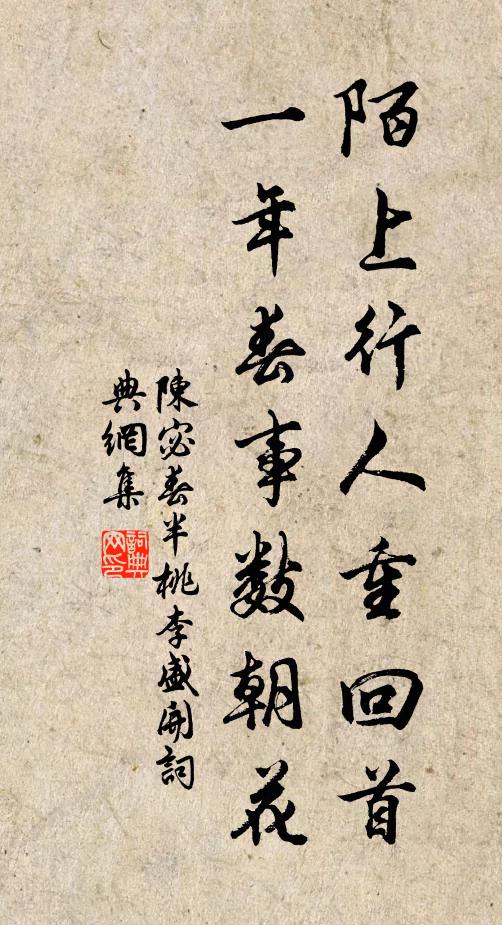 陌上行人重回首
一年春事数朝花
陳宓春半桃李盛開詞
典網集
詞典
网印